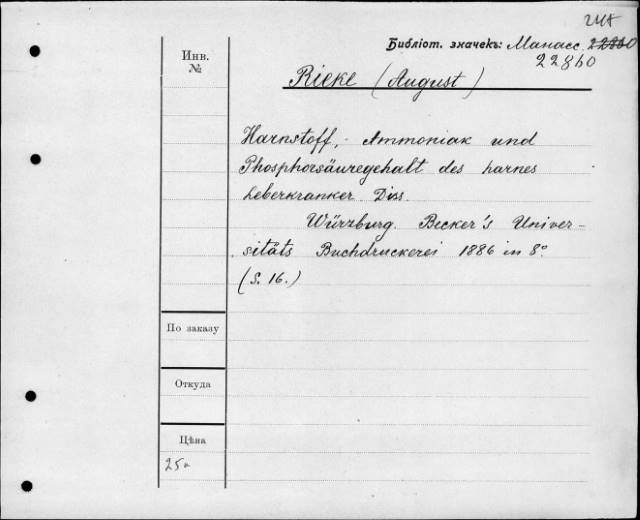 Библіот. значекъ: Манасс. 22860
22860
Инв.
№
Rieke (August)
Harnstoff, Ammoniak und
Phosphorsäuregehalt des harnes
Leberkranker. Diss.
Würzburg. Becker's Univer-
sitäts Buchdruckerei 1886 in 8°.
(S. 16.)
По заказу
Откуда
Цѣна